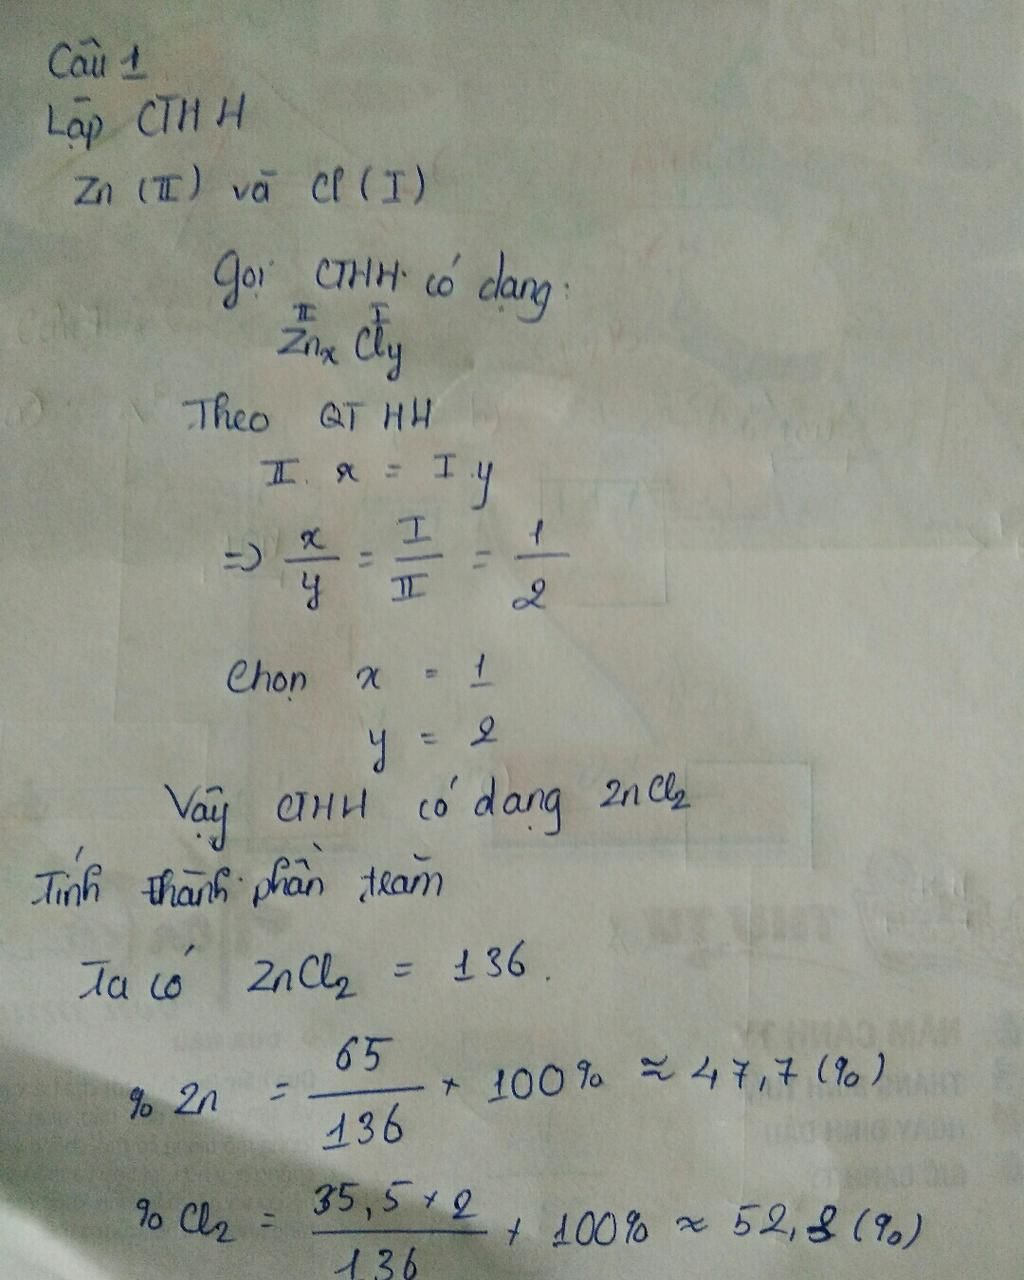 Câu 1
Lập CTHH
Zn (II) và Cl (I)
Gọi CTHH có dạng:
II I
Znx Cly
Theo QTHH
II. x = I.y
=> x/y = I/II = 1/2
Chọn x = 1
y = 2
Vậy CTHH có dạng ZnCl2
Tính thành phần trăm
Ta có ZnCl2 = 136.
% Zn = 65/136 x 100% ≈ 47,7 (%)
% Cl2 = 35,5 x 2/136 x 100% ≈ 52,2 (%)
NĂM CANH TÝ